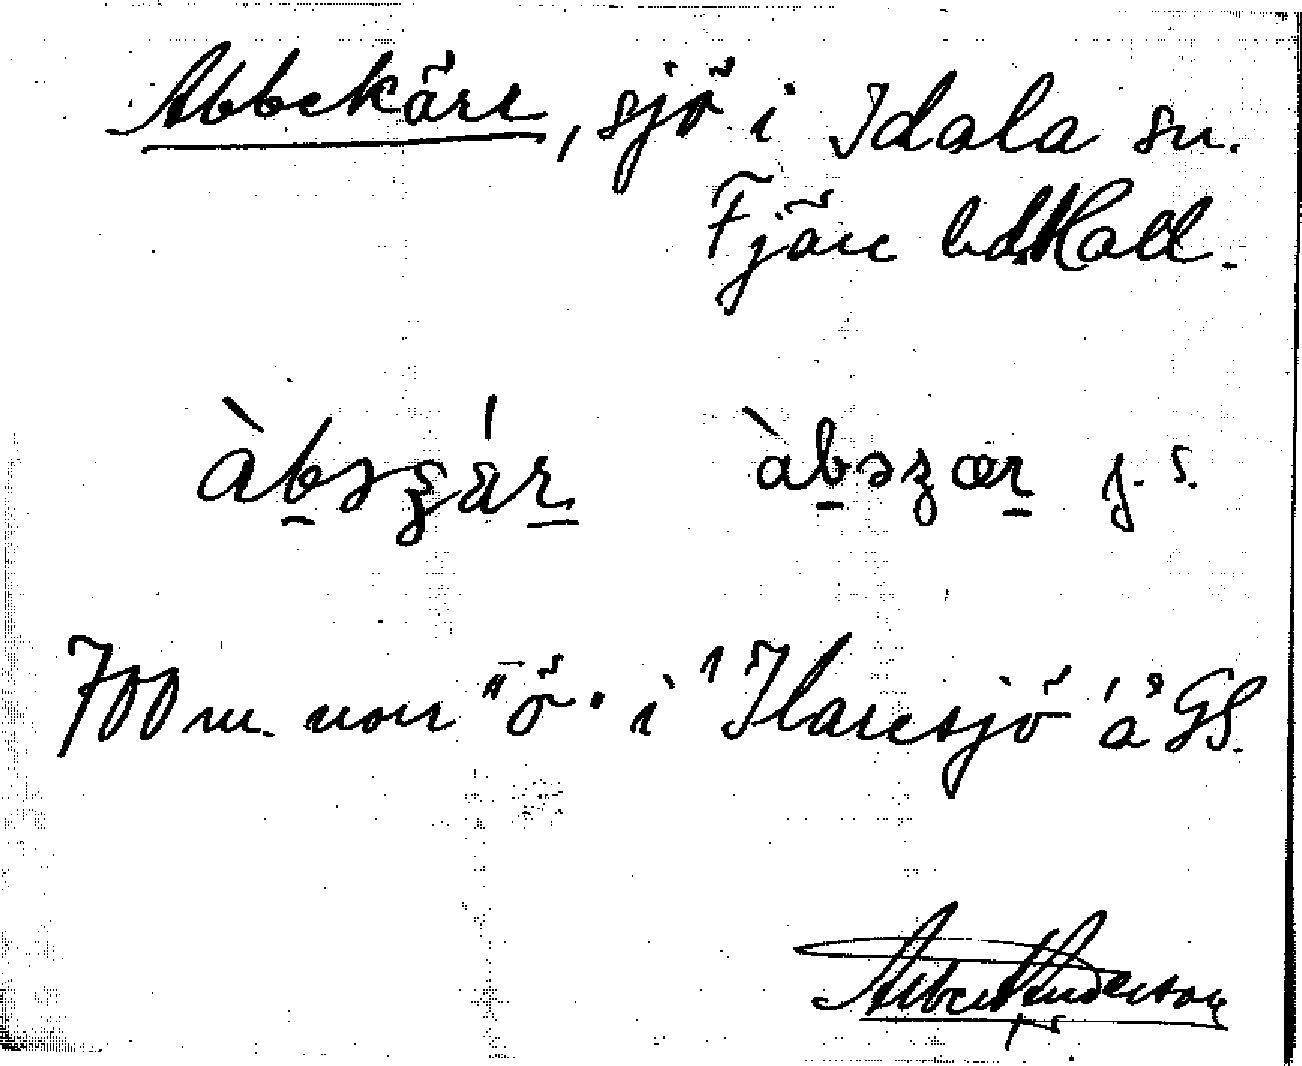 Abbekärr, sjö i Idala sn.
Fjäre hd. Hall.
àbəʓár àbəʓær j. s.
700 m. norr "ö" i "Haresjö" å GS.
Albert Anderson